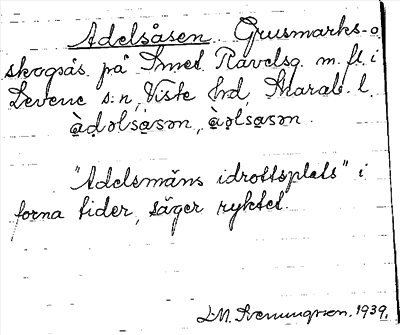 Adelsåsen. Grusmarks- o.
skogsås på Smed. Ravelsg. m. fl. i
Levene s:n, Viste hd, Skarab. l.
àdəlsåsən, àəlsåsən.
"Adelsmäns idrottsplats" i
forna tider, säger ryktet.
L.M. Svenungsson. 1939.